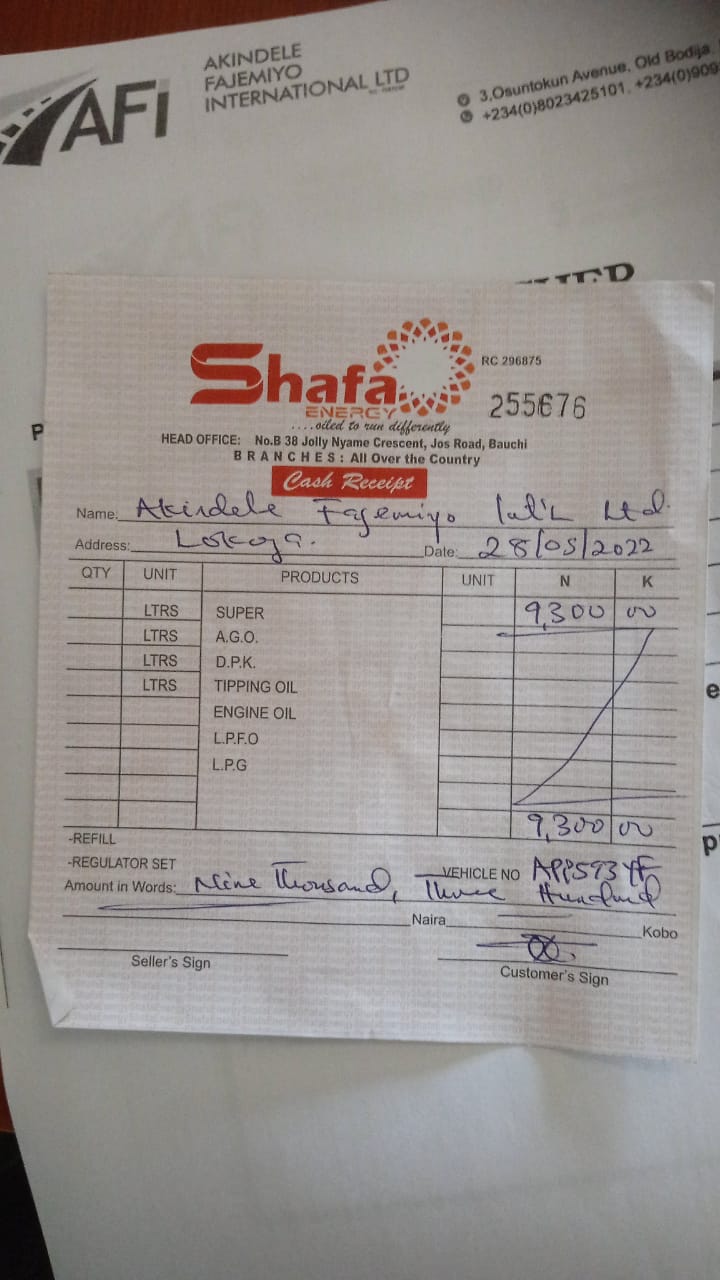 AFi
AKINDELE
FAJEMIYO
INTERNATIONAL LTD
3,Osuntokun Avenue, Old Bodija
+234(0)8023425101, +234(0)909
Shafa
ENERGY
....oiled to run differently
RC 296875
255676
HEAD OFFICE: No.B 38 Jolly Nyame Crescent, Jos Road, Bauchi
BRANCHES: All Over the Country
Cash Receipt
Name: Akindele Fajemiyo Int'L Ltd.
Address: Lokoja. Date: 28/05/2022
QTY UNIT PRODUCTS UNIT N K
LTRS SUPER 9,300 00
LTRS A.G.O.
LTRS D.P.K.
LTRS TIPPING OIL
ENGINE OIL
L.P.F.O
L.P.G
9,300 00
-REFILL
-REGULATOR SET VEHICLE NO APP593YF
Amount in Words: Nine Thousand, Three Hundred
Naira Kobo
Seller's Sign Customer's Sign